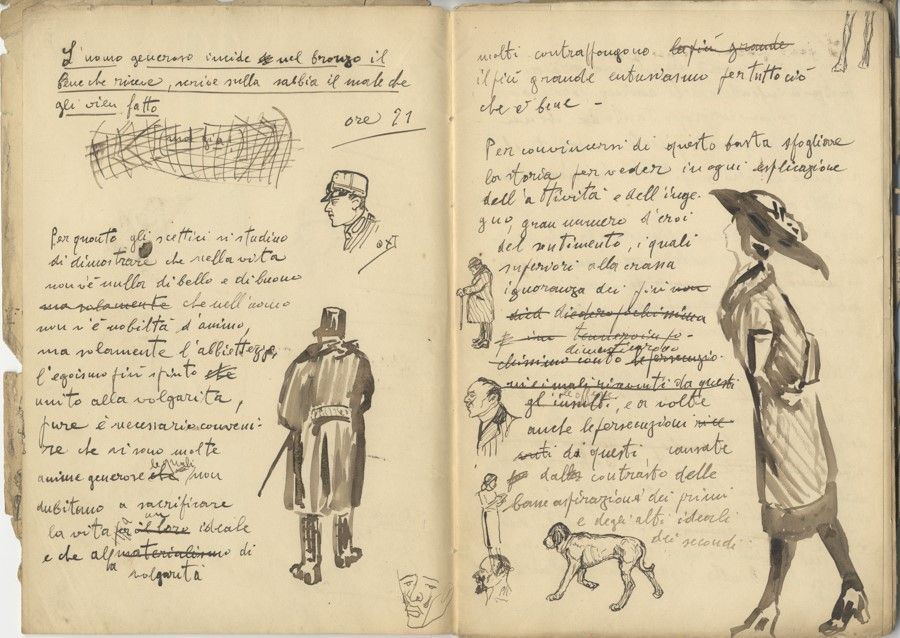 L'uomo generoso incide nel bronzo il
bene che riceve, scrive sulla sabbia il male che
gli vien fatto
ore 21
Per quanto gli scettici si studino
di dimostrare che nella vita
non v'è nulla di bello e di buono
ma solamente che nell'uomo
non v'è nobiltà d'animo,
ma solamente l'abbiettezza,
l'egoismo più spinto che
unito alla volgarità,
pure è necessario conveni-
re che vi sono molte
anime generose che le quali non
dubitano a sacrificare
la vita per un il loro ideale
e che al materialismo di
la volgarità
molti contraffongono la più grande
il più grande entusiasmo per tutto ciò
che è bene -
Per convincersi di questo basta sfogliare
la storia per veder in ogni esplicazione
dell'attività e dell'inge-
gno, gran numero d'eroi
del sentimento, i quali
superiori alla crassa
ignoranza dei più non
dimenticarono
le persecuzio-
ni e i mali ricevuti da questi
gli insulti, e a volte
anche le persecuzioni rice-
vuti da questi causate
dal contrasto delle
basse aspirazioni dei primi
e degli alti ideali
dei secondi.